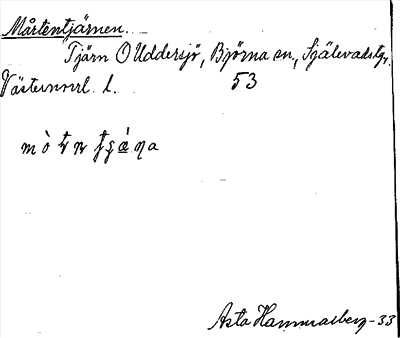 Mårtentjärnen.
Tjärn O Uddersjö, Björna sn, Själevads tgr.
Västernorrl. l. 53
Asta Hammarberg - 33